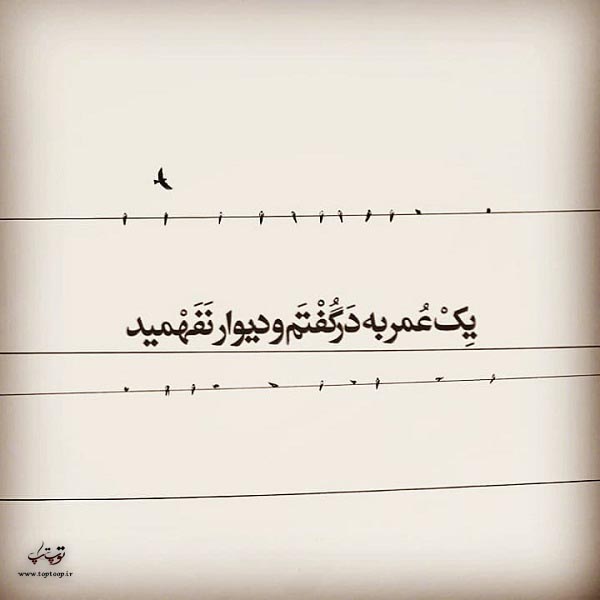 یِکْ عُمر به دَر گُفْتَم و دیوار نَفَهْمید
توپ تاپ
www.toptoop.ir